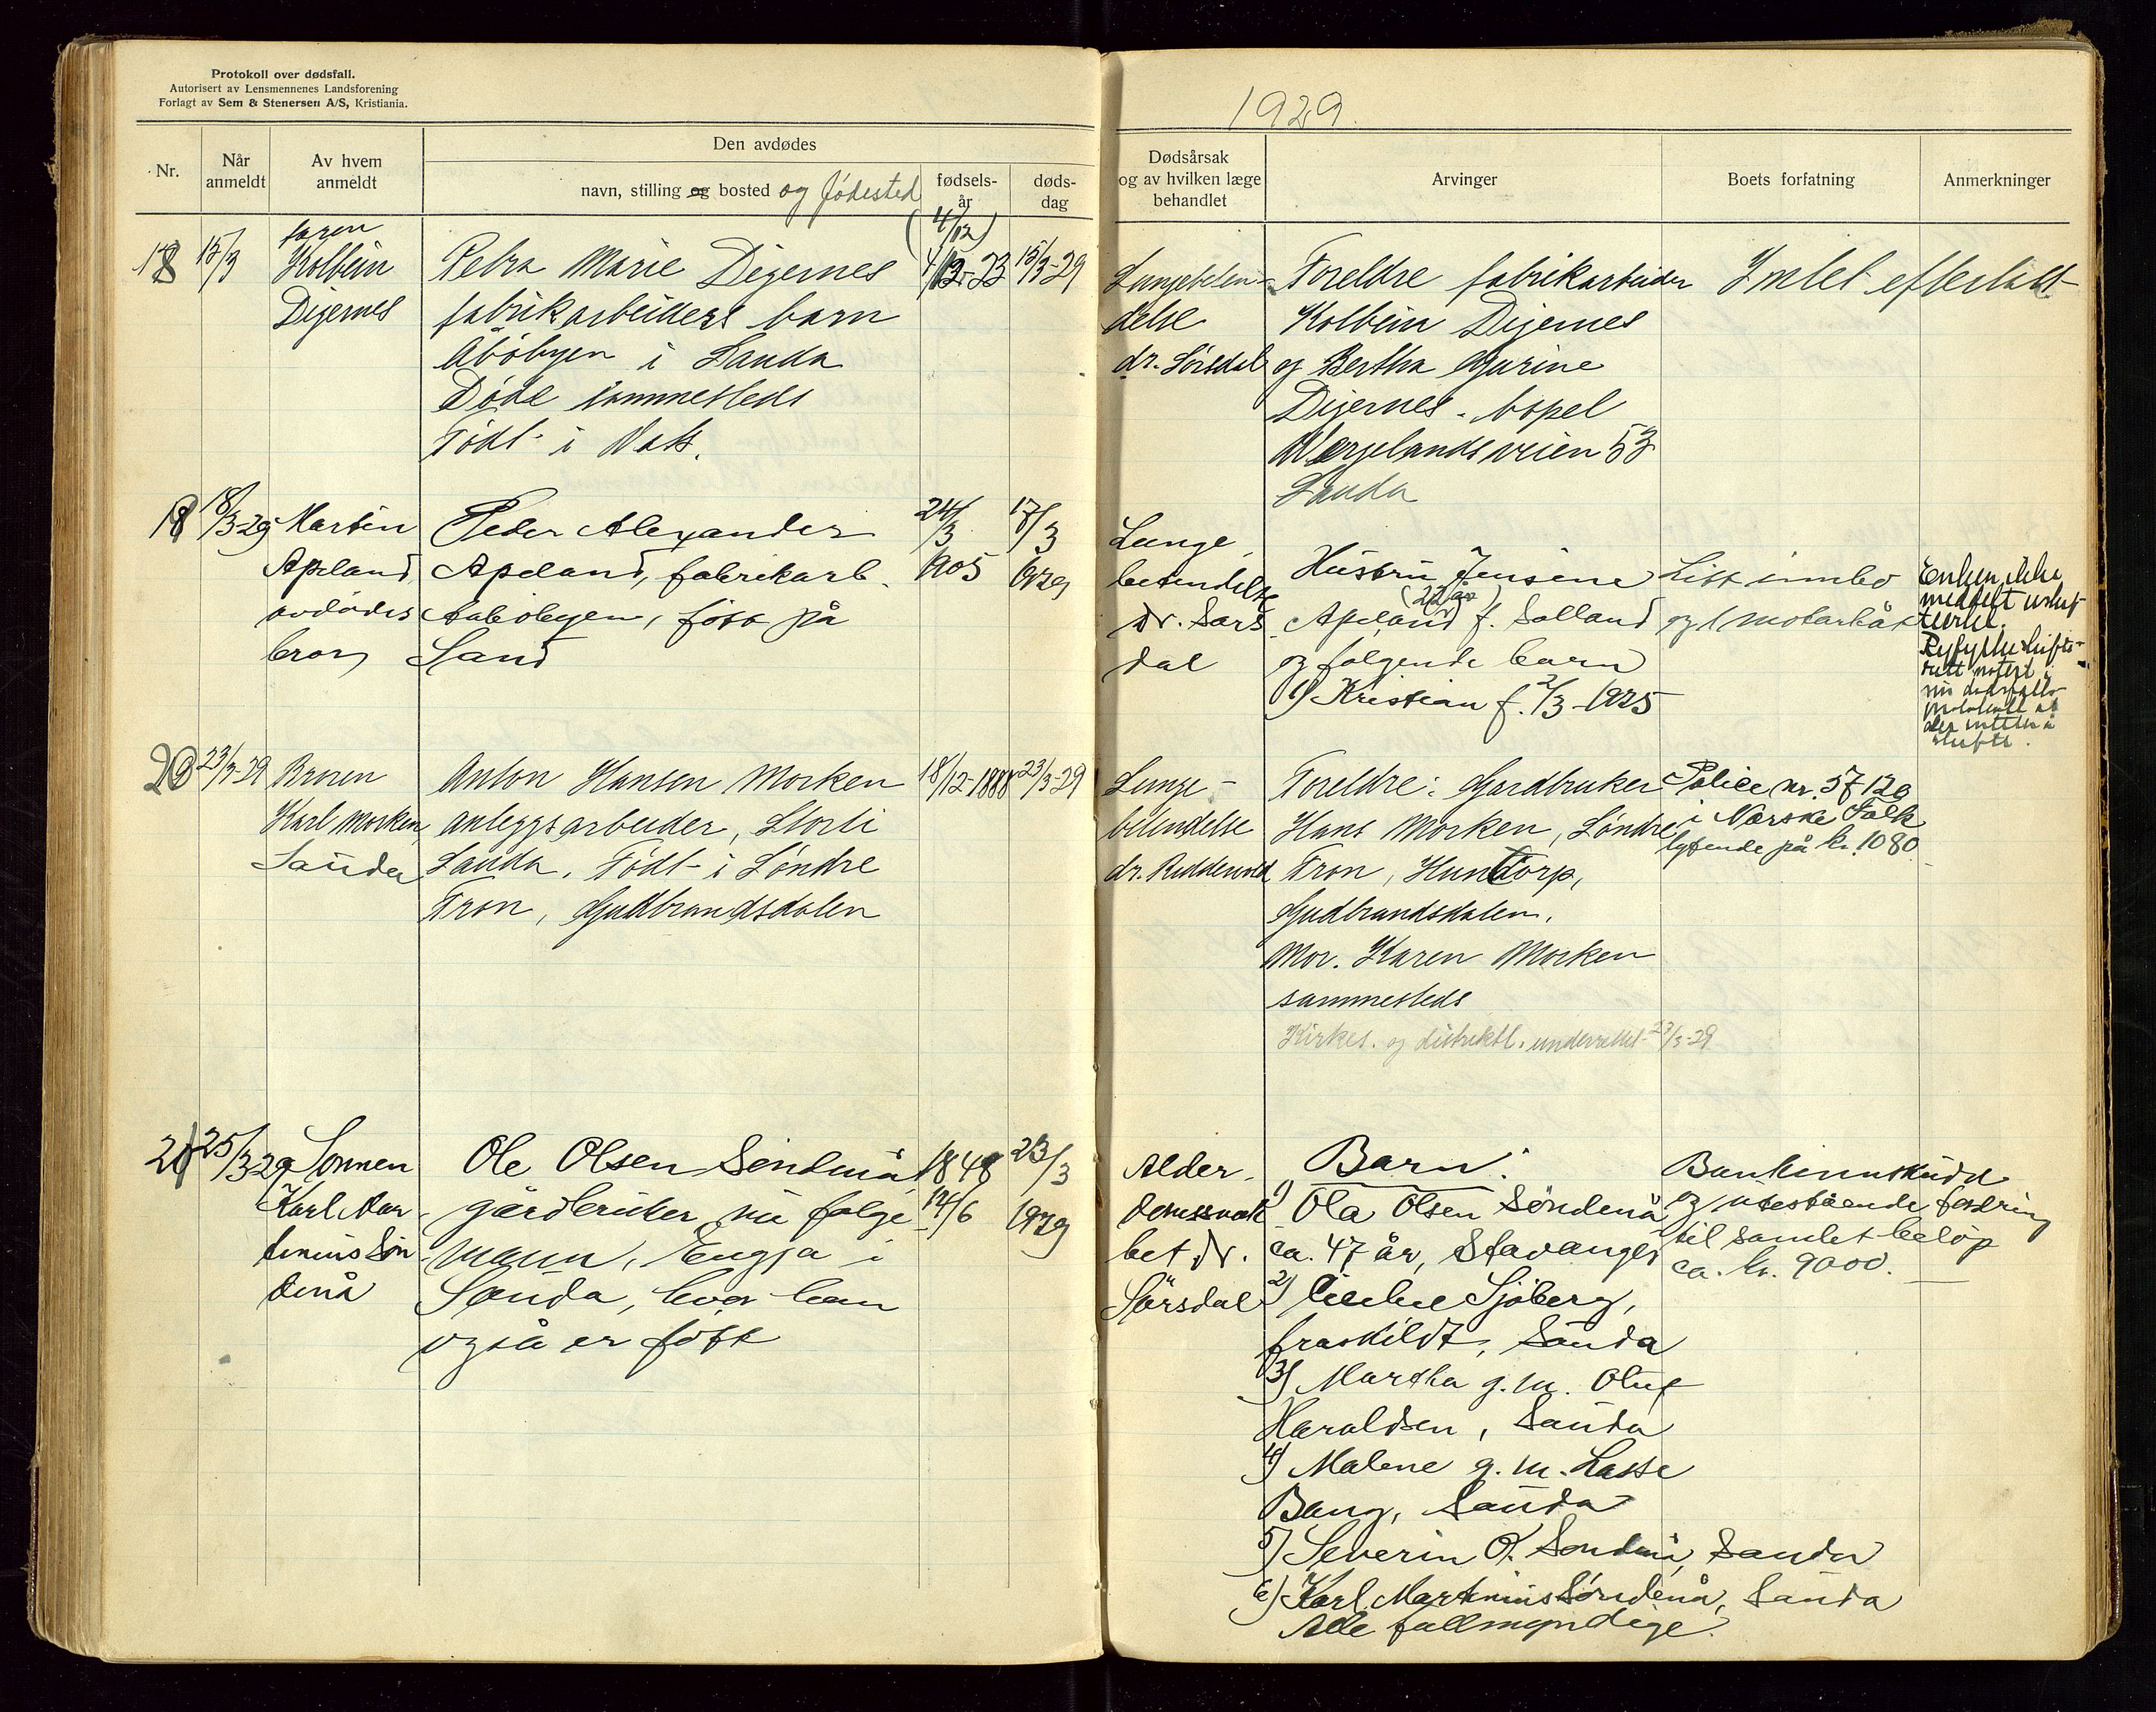 Protokoll over dødsfall.
Autorisert av Lensmennenes Landsforening
Forlagt av Sem & Stenersen A/S, Kristiania.
1929.
Nr.
Når anmeldt
Av hvem anmeldt
Den avdødes
navn, stilling og bosted og fødested
fødselsår
dødsdag
Dødsårsak og av hvilken læge behandlet
Arvinger
Boets forfatning
Anmerkninger
18
15/3
faren
Kolbein
Digernes
Petra Marie Digernes
fabrikarbeiders barn
Åbøbyen i Sauda
Døde sammesteds
Født i Vats.
(4/12)
4/12-23
15/3-29
Lungebeten-
delse
dr. Sørsdal
Foreldre fabrikarbeider
Kolbein Digernes
og Bertha Gurine
Digernes. bopel
Wergelandsveien 53
Sauda
Intet efterlatt
18/3-29
Martin
Apeland
avdødes
bror
Peder Alexander
Apeland, fabrikarb.
Aabøbyen, født på
Sand
24/3
1905
17/3
1929
Lunge
betendelse
Dr. Sørs
dal
Hustru Jensine
(22 år)
Apeland f. Solland
og følgende barn
1) Kristian f. 2/3-1925
Litt innbo
og 1 motorbåt
Enken ikke
meddelt uskif-
teerkl.
Ryfylke skifte-
rett notert i
sin dødsfalls-
protokoll at
der intet er å
skifte.
20
23/3-29
Broren
Karl Morken,
Sauda
Anton Hansen Morken
anleggsarbeider, Storli
Sauda. Født i Søndre
Fron, Gudbrandsdalen
18/12-1888
23/3-29
Lunge-
betendelse
dr. Riddervold
Foreldre: Gardbruker
Hans Morken, Søndre
Fron, Hundorp,
Gudbrandsdalen.
Mor. Karen Morken
sammesteds
Kirkes. og distriktl. underrettet 23/3-29
Police nr. 57120
i Norske Folk
lydende på kr. 1080
21
25/3-29
Sønnen
Karl Mar
tinius Søn
denå
Ole Olsen Søndenå
gårdbruker, nu folge
mann, Engja i
Sauda, hvor han
også er født
1848
14/6
23/3
1929
Alder
domssvak
het Dr.
Sørsdal
Barn:
1) Ola Olsen Søndenå
ca. 47 år, Stavanger
2) Sjøberg,
fraskildt, Sauda
3) Martha g.m. Oluf
Haraldsen, Sauda
4) Malene g.m. Lasse
Bang, Sauda
5) Severin O. Søndenå, Sauda
6) Karl Martinius Søndenå, Sauda
Alle fullmyndige.
Bankinnskudd
og utestående fordring
til samlet beløp
ca. kr. 9000.